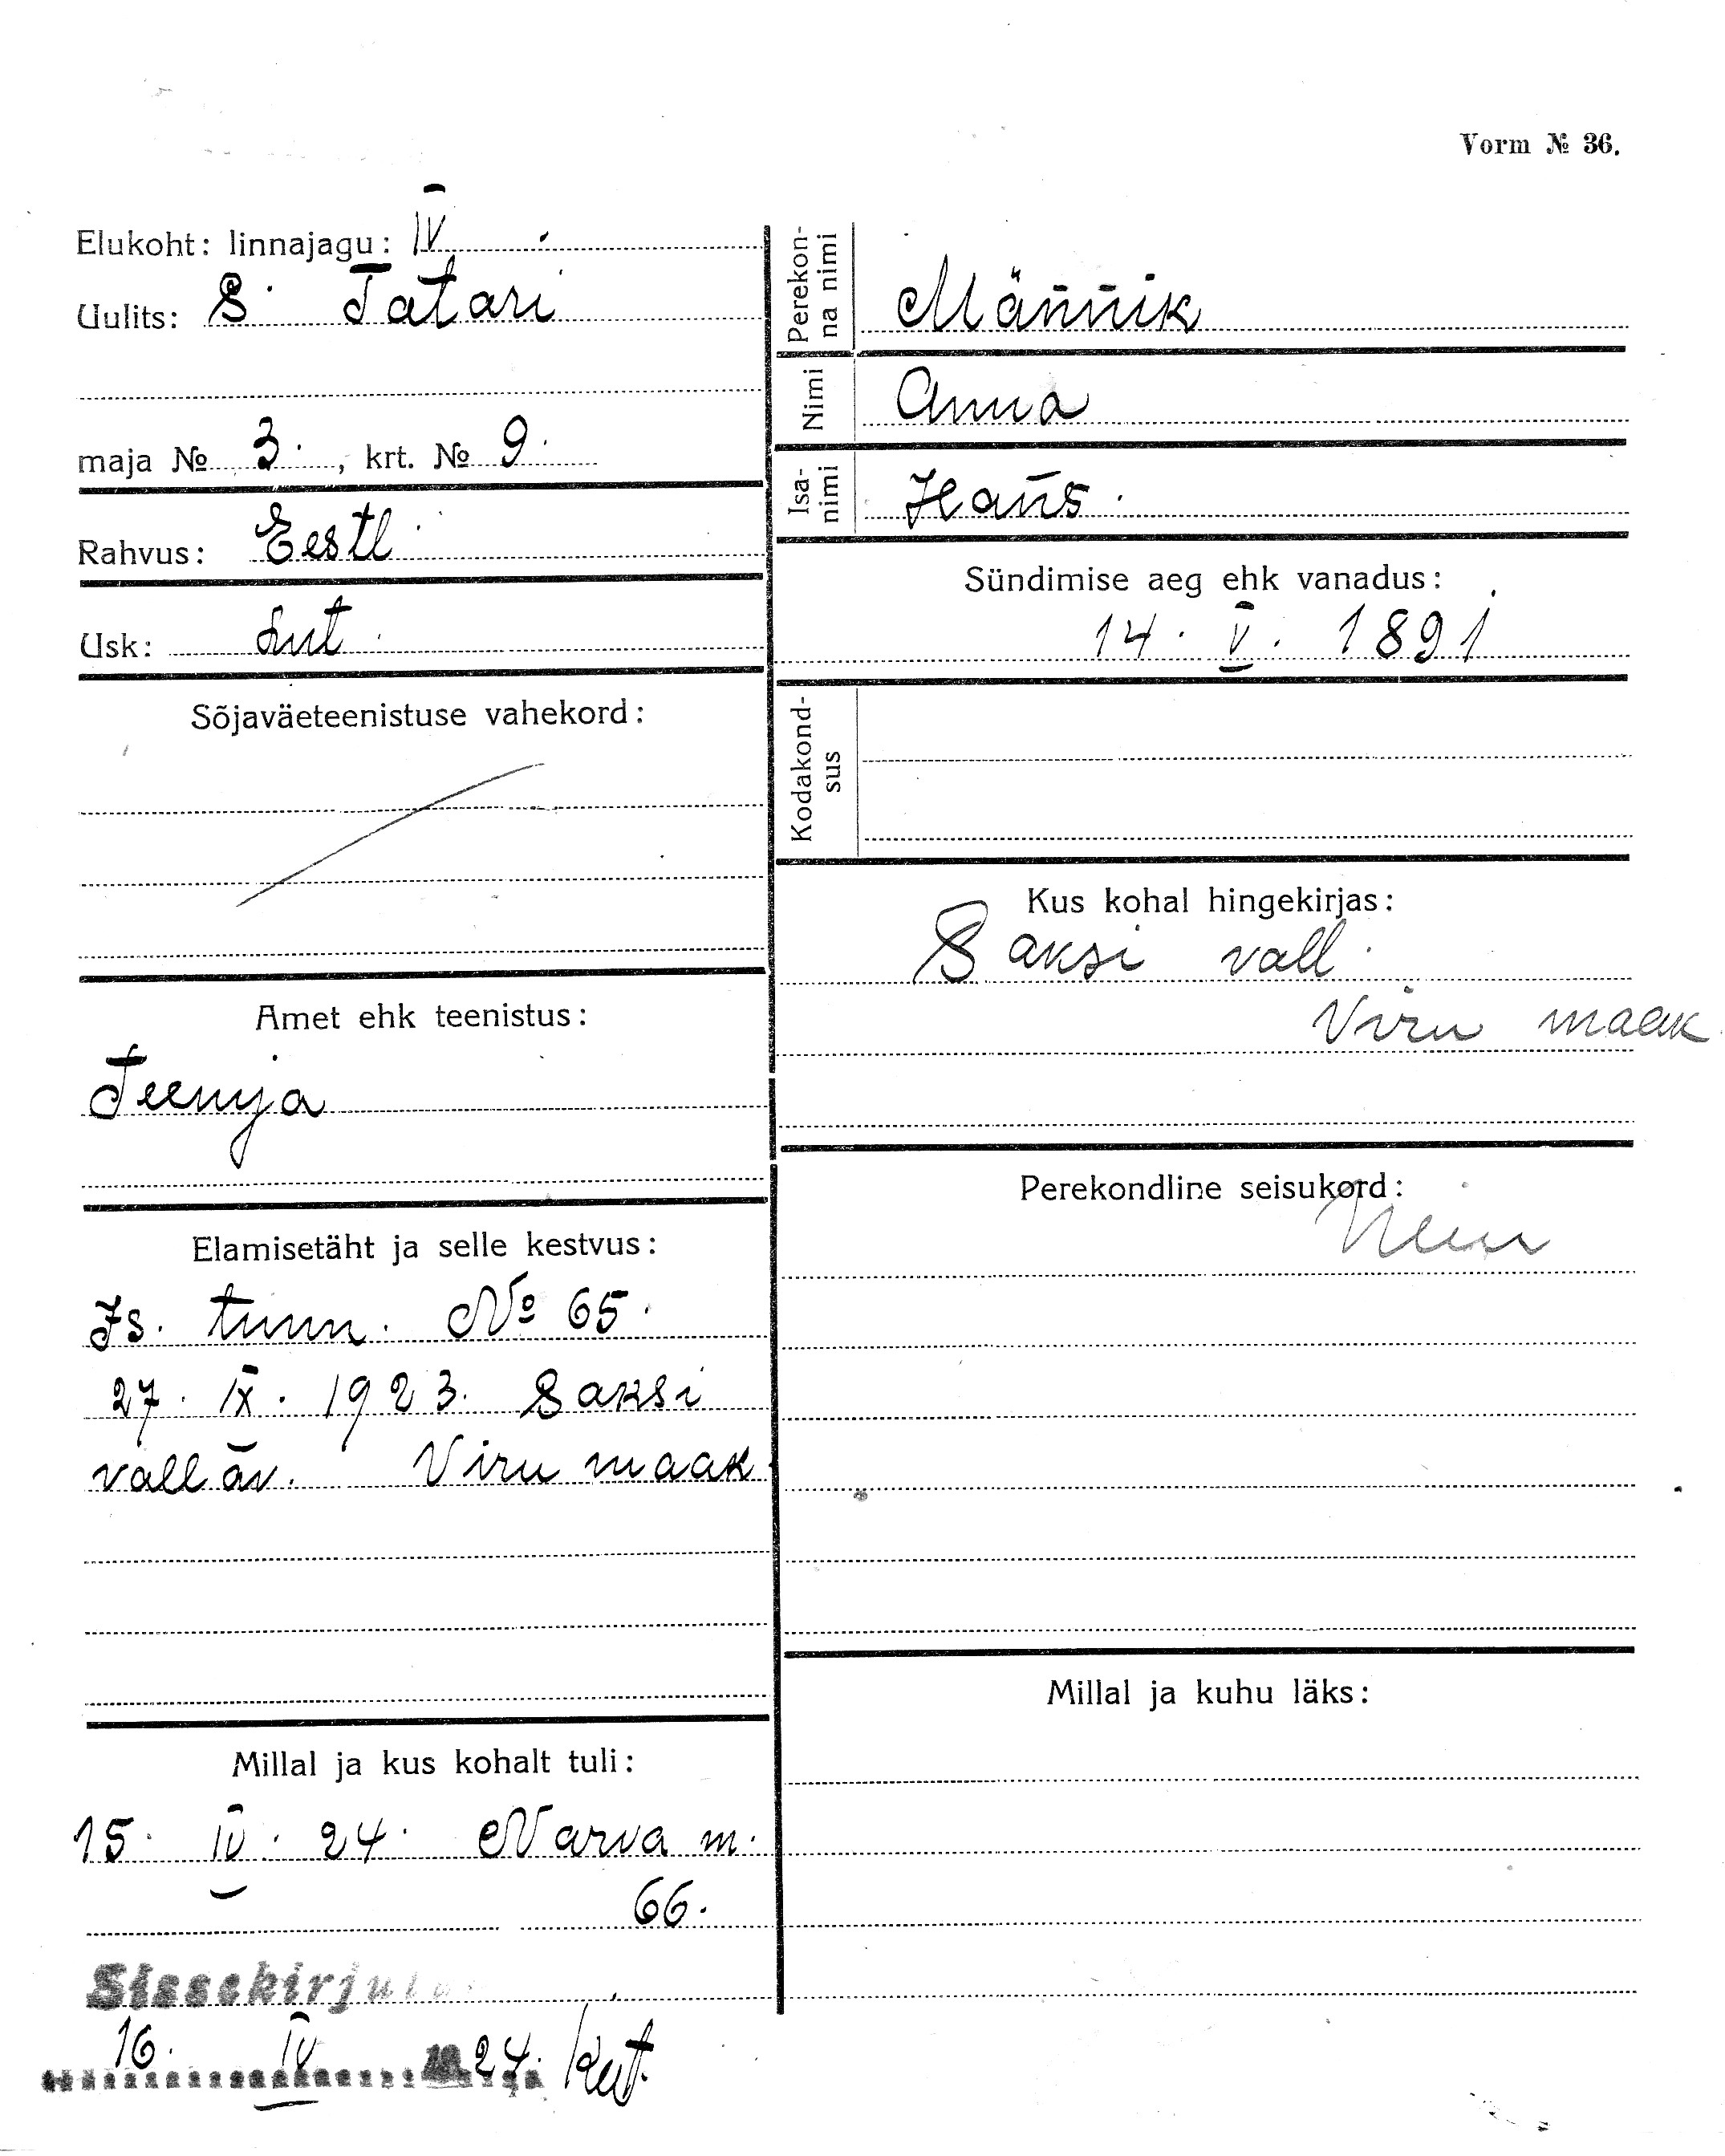 Vorm № 36.
Elukoht: linnajagu: IV
Uulits: S. Tatari
maja № 3., krt. № 9.
Rahvus: Eestl.
Usk: Lut.
Sõjaväeteenistuse vahekord:
Amet ehk teenistus:
Teenija
Elamisetäht ja selle kestvus:
Is. tunn. № 65.
27. IX. 1923. Saksi
valláv. Viru maak.
Millal ja kus kohalt tuli:
15. IV. 24. Narva m.
66.
Sissekirjuta
16. IV 1924.
Perekon-
na nimi
Männik
Nimi
Anna
Isa-
nimi
Hans.
Sündimise aeg ehk vanadus:
14. V. 1891
Kodakond-
sus
Kus kohal hingekirjas:
Saksi vall.
Viru maak.
Perekondline seisukord:
Millal ja kuhu läks: